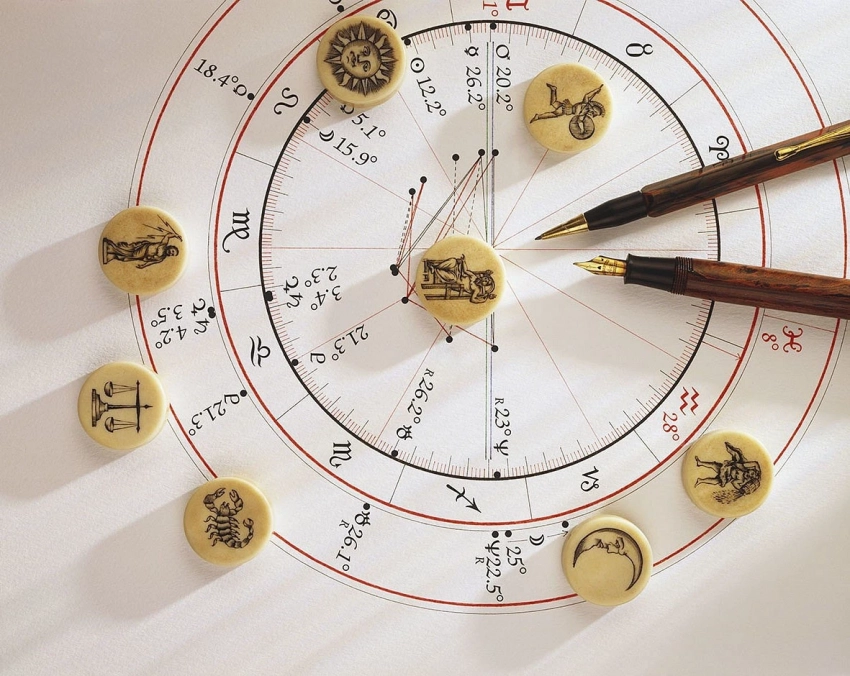 ♊
1°
♉
♈
♌
♍
♎
♏
♐
♑
♒
28°
♓
8°
18.4°☊
☉ 12.2°
☿ 26.2°
♂ 20.2°
5.1°
☽ 15.9°
♃ ♄
2.3°
3.4°
♃ ♄
3.5°
4.2°
♇ 21.3°
♇21.3°
R26.2°♅
♅26.1°
R
R23°♆
25° ☽
♆22.5°
R